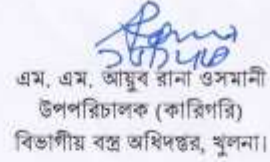 এম, এম, আয়ুব রানা ওসমানী
উপপরিচালক (কারিগরি)
বিভাগীয় বস্ত্র অধিদপ্তর, খুলনা।